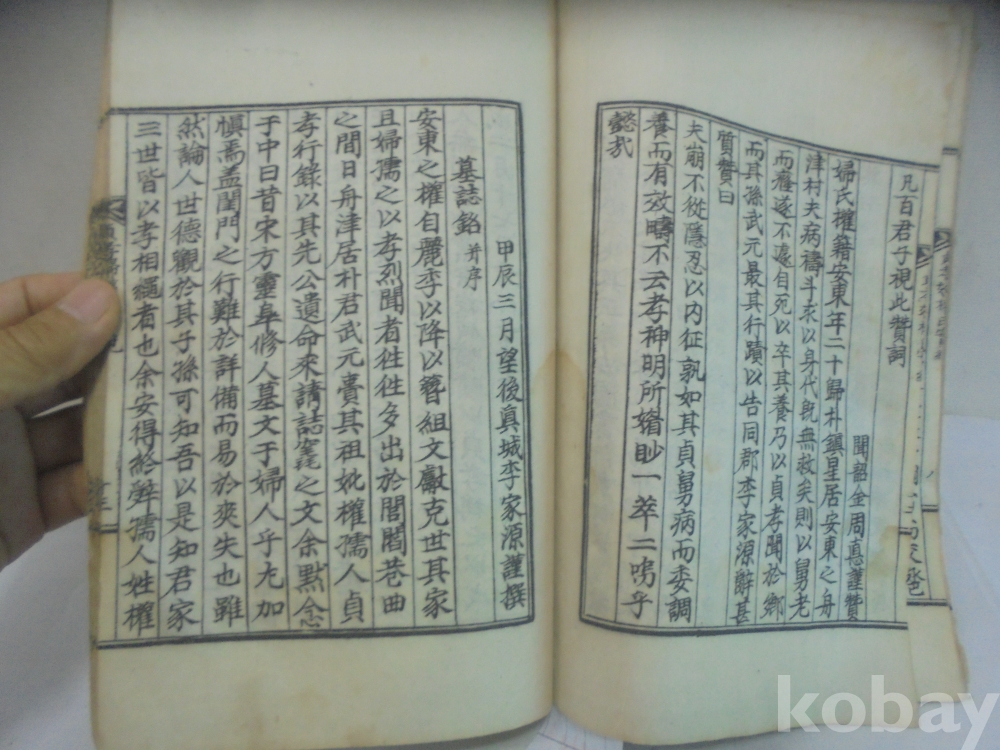 凡百君子視此贊詞
聞韶金周真謹贊
婦氏權籍安東年二十歸朴鎭星居安東之舟
津村夫病禱斗求以身代旣無救矣則以舅老
而癃遂不遽自死以卒其養乃以貞孝聞於鄉
而其孫武元最其行蹟以告同郡李家源辭甚
質贊曰
夫崩不從隱忍以內征孰如其貞舅病而委調
養而有效疇不云孝神明所婿眇一萃二嗚乎
懿哉
甲辰三月望後真城李家源謹撰
墓誌銘 并序
安東之權自麗季以降以簪組文獻克世其家
且婦孺之以孝烈聞者往往多出於閭閻巷曲
之間日舟津居朴君武元賫其祖妣權孺人貞
孝行錄以其先公遺命來請誌窆之文余黙念
于中曰昔宋方靈皐修人墓文于婦人乎尤加
愼焉盖閨門之行難於詳備而易於爽失也雖
然論人世德觀於其子孫可知吾以是知君家
三世皆以孝相繩者也余安得給辭孺人姓權
kobay